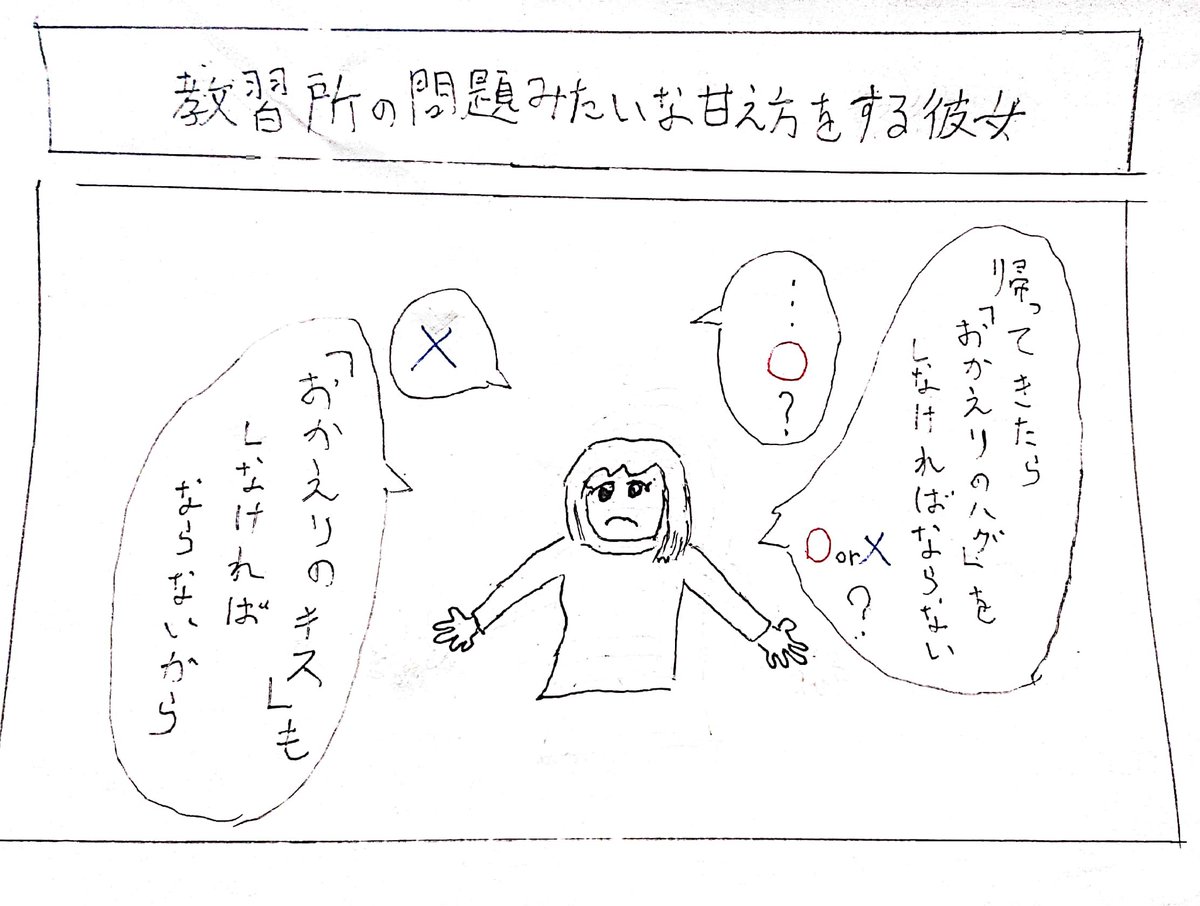 教習所の問題みたいな甘え方をする彼女
帰ってきたら
「おかえりのハグ」を
しなければならない
○or×
?
…
○
?
×
「おかえりのキス」も
しなければ
ならないから